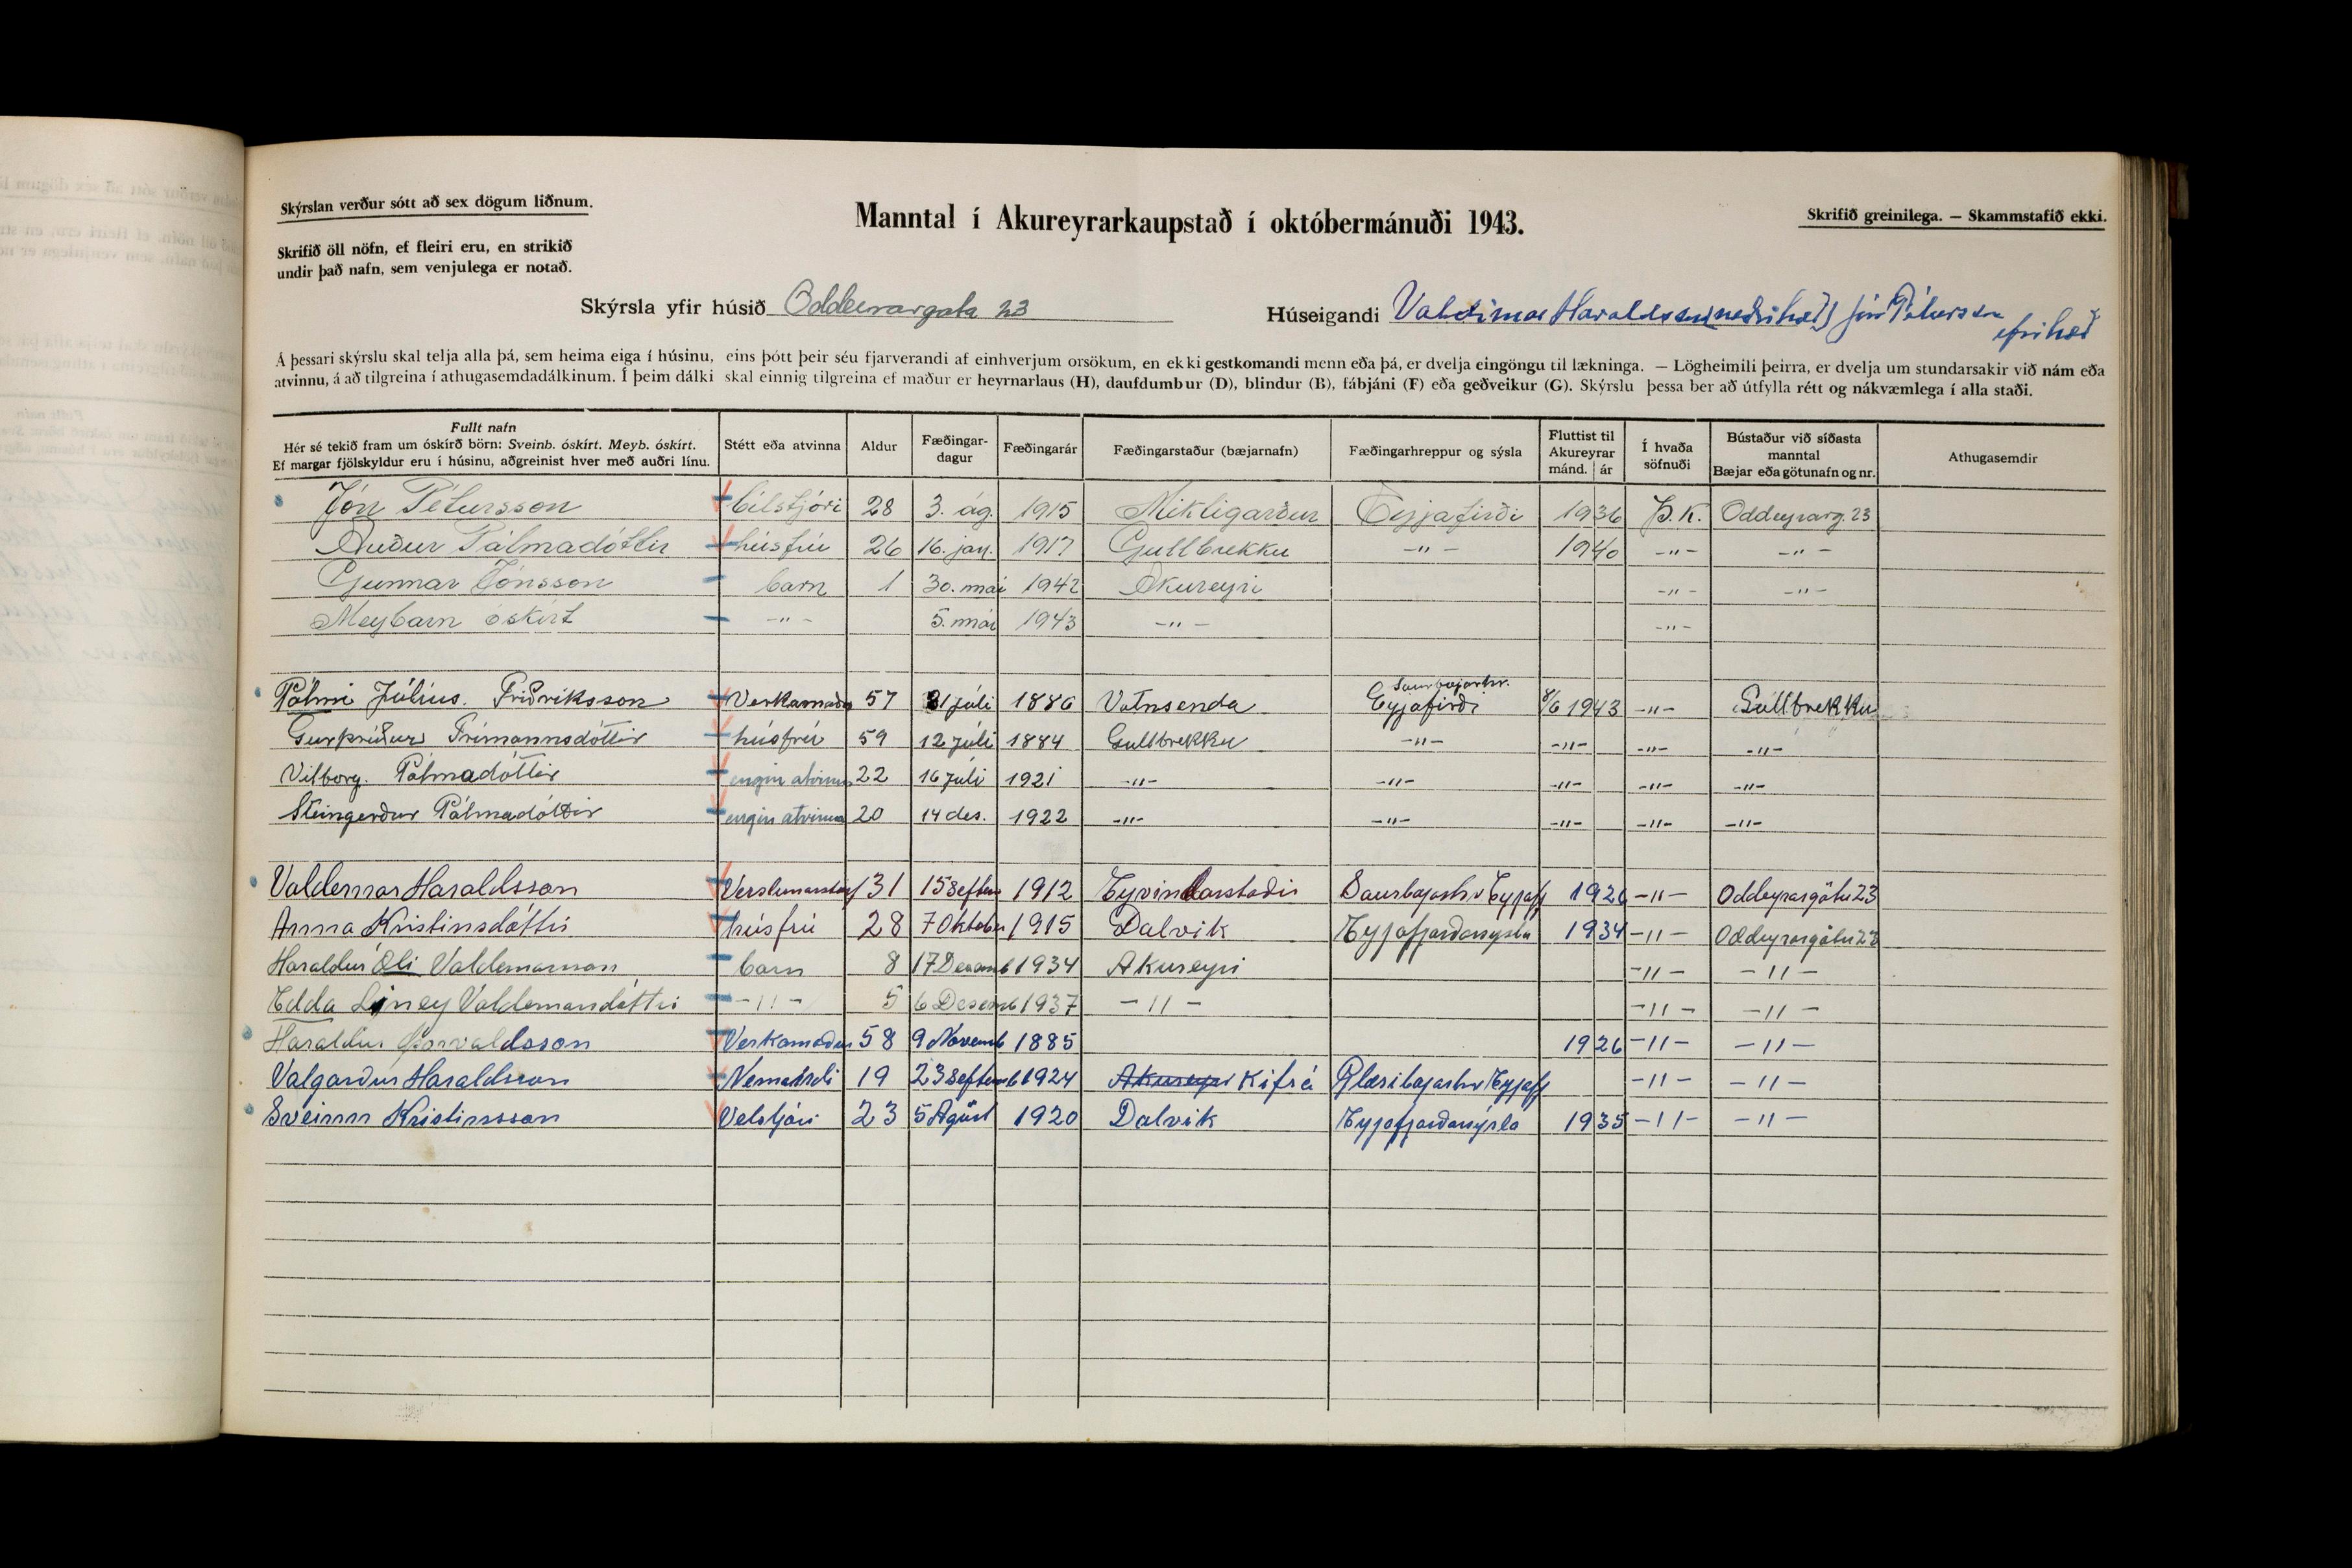 Skýrslan verður sótt að sex dögum liðnum.
Manntal í Akureyrarkaupstað í októbermánuði 1943.
Skrifið greinilega. — Skammstafið ekki.
Skrifið öll nöfn, ef fleiri eru, en strikið
undir það nafn, sem venjulega er notað.
Skýrsla yfir húsið Oddeyrargata 23
Húseigandi Valdimar Haraldsson (neðri hæð) Jón Pétursson
efri hæð
Á þessari skýrslu skal telja alla þá, sem heima eiga í húsinu, eins þótt þeir séu fjarverandi af einhverjum orsökum, en ekki gestkomandi menn eða þá, er dvelja eingöngu til lækninga. — Lögheimili þeirra, er dvelja um stundarsakir við nám eða
atvinnu, á að tilgreina í athugasemdadálkinum. Í þeim dálki skal einnig tilgreina ef maður er heyrnarlaus (H), daufdumbur (D), blindur (B), fábjáni (F) eða geðveikur (G). Skýrslu þessa ber að útfylla rétt og nákvæmlega í alla staði.
Fullt nafn
Hér sé tekið fram um óskírð börn: Sveinb. óskírt. Meyb. óskírt.
Ef margar fjölskyldur eru í húsinu, aðgreinist hver með auðri línu.
Stétt eða atvinna
Aldur
Fæðingar-
dagur
Fæðingarár
Fæðingarstaður (bæjarnafn)
Fæðingarhreppur og sýsla
Fluttist til
Akureyrar
mánd. ár
Í hvaða
söfnuði
Bústaður við síðasta
manntal
Bæjar eða götunafn og nr.
Athugasemdir
Jón Pétursson bílstjóri 28 3. ág. 1915 Mikligarður Eyjafirði 1936 Þ.K. Oddeyrarg. 23
Auður Pálmadóttir húsfrú 26 16. jan. 1917 Gullbrekku -"- 1940 -"- -"-
Gunnar Jónsson barn 1 30. maí 1942 Akureyri -"- -"-
Meybarn óskírt -"- 5. maí 1943 -"- -"-
Pálmi Júlíus. Friðriksson Verkamaður 57 31 júli 1886 Vatnsenda Saurbæjarhr. Eyjafirði 8/6 1943 -"- Gullbrekku
Guðríður Frímannsdóttir húsfrú 59 12 júli 1884 Gullbrekku -"- -"- -"- -"-
Vilborg. Pálmadóttir engin atvinna 22 16 júli 1921 -"- -"- -"- -"- -"-
Steingerður Pálmadóttir engin atvinna 20 14 des. 1922 -"- -"- -"- -"- -"-
Valdemar Haraldsson 31 15 Septem 1912 Eyvindarstaðir Saurbæjarhr Eyjafj 1926 -"- Oddeyrargötu 23
Anna Kristinsdóttir húsfrú 28 7 Október 1915 Dalvik Eyjafjarðarsýslu 1934 -"- Oddeyrargötu 23
Haraldur Óli Valdemarsson barn 8 17 Desemb 1934 Akureyri -"- -"-
Edda Líney Valdemarsdóttir -"- 5 6 Desemb 1937 -"- -"- -"-
Haraldur Þorvaldsson Verkamaður 58 9 Novemb 1885 1926 -"- -"-
Valgarður Haraldsson Nemandi 19 23 Septemb 1924 Akureyri Kifsá Glæsibæjarhr Eyjafj -"- -"-
Sveinn Kristinsson Velstjóri 23 5 Águst 1920 Dalvik Eyjafjarðarsýsla 1935 -"- -"-